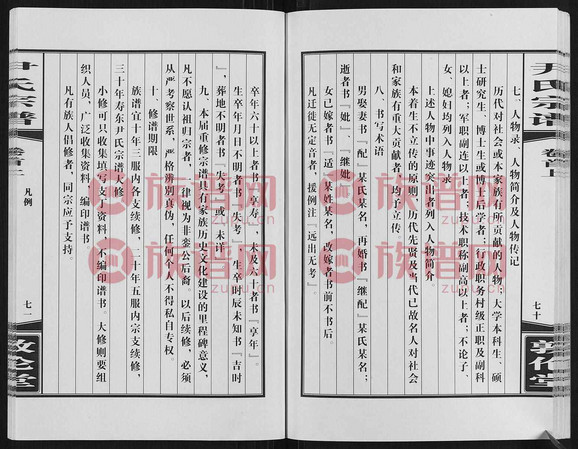 尹氏宗谱
卷首上
七十
敦伦堂
七、人物录、人物简介及人物传记
历代对社会或本家族有所贡献的人物，大学本科生、硕
士研究生、博士生或博士后学者；行政职务村级正职及副科
以上者；军职副连以上者；技术职称副高以上者；不论子、
女、媳妇均列入人物录
上述人物中事迹突出者列入人物简介
本着生不立传的原则，历代先贤及当代已故名人对社会
和家族有重大贡献者，均予立传。
八、书写术语
男娶妻书『配』某氏某名，再婚书『继配』某氏某名；
逝者书『妣』、『继妣』
女已嫁者书『适』某姓某名，改嫁者书前不书后。
凡迁徙无定音者，援例注『远出无考』。
卒年六十以上者书『享寿』，未及六十者书『享年』
生卒年月日不明者书『失考』，生卒时辰未知书『吉时
』，葬地不明者书『失考』或『未详』
九、本届重修宗谱具有家族历史文化建设的里程碑意义，
凡不愿认祖归宗者，一律视为非銮公后裔。以后续修，必须
从严考察世系，严格辨别真伪，任何个人不得私自专权。
十、修谱期限
族谱宜十年三服内各支续修，二十年五服内宗支续修，
三十年寿东尹氏宗谱大修
小修可只收集填写支丁资料，不编印谱书。大修则要组
织人员，广泛收集资料，编印谱书
凡有族人倡修者，同宗应予支持。
尹氏宗谱
卷首上
凡例
七一
敦伦堂
族谱网